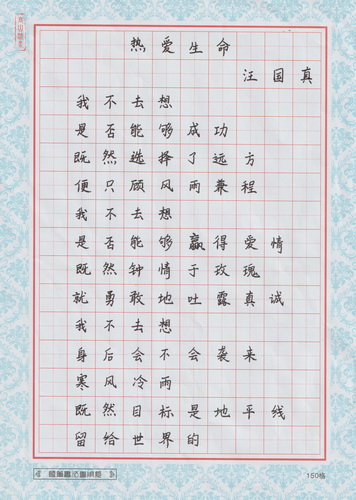 热爱生命
汪国真
我不去想
是否能够成功
既然选择了远方
便只顾风雨兼程
我不去想
是否能够赢得爱情
既然钟情于玫瑰
就勇敢地吐露真诚
我不去想
身后会不会袭来
寒风冷雨
既然目标是地平线
留给世界的
150格